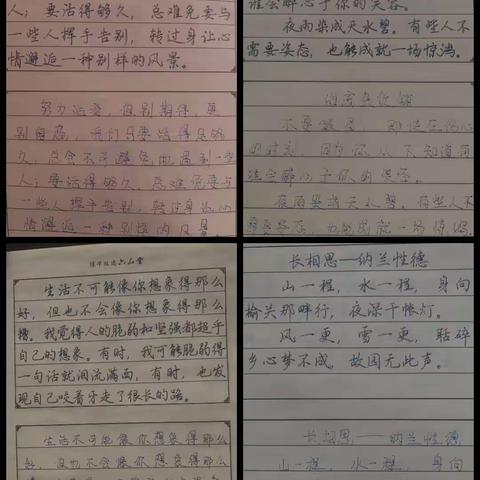 人；要活得够久，总难免要与
一些人挥手告别，转过身让心
情邂逅一种别样的风景。
努力活爱，但别期待，更
久，总会不可避免地遇到一些
人；要活得够久，总难免要与
一些人挥手告别，转过身让心
情邂逅一种别样的风景
谁会醉心于你的笑容。
夜雨染成天水碧。有些人不
需要姿态，也能成就一场惊鸿。
的时刻，因为你从不知道有
谁会醉心于你的笑容
夜雨染成天水碧，有些人不
需要姿态，也能成就一场惊鸿
生活不可能像你想象得那么
好，但也不会像你想象得那么
糟。我觉得人的脆弱和坚强都超乎
自己的想象。有时，我可能脆弱得
一句话就泪流满面，有时，也发
现自己咬着牙走了很长的路。
生活不可能像你想象得那么
好，但也不会像你想象得那么
长相思——纳兰性德
山一程，水一程，身向
榆关那畔行，夜深千帐灯。
风一更，雪一更，聒碎
乡心梦不成。故园无此声。
长相思——纳兰性德
山一程，水一程，身向